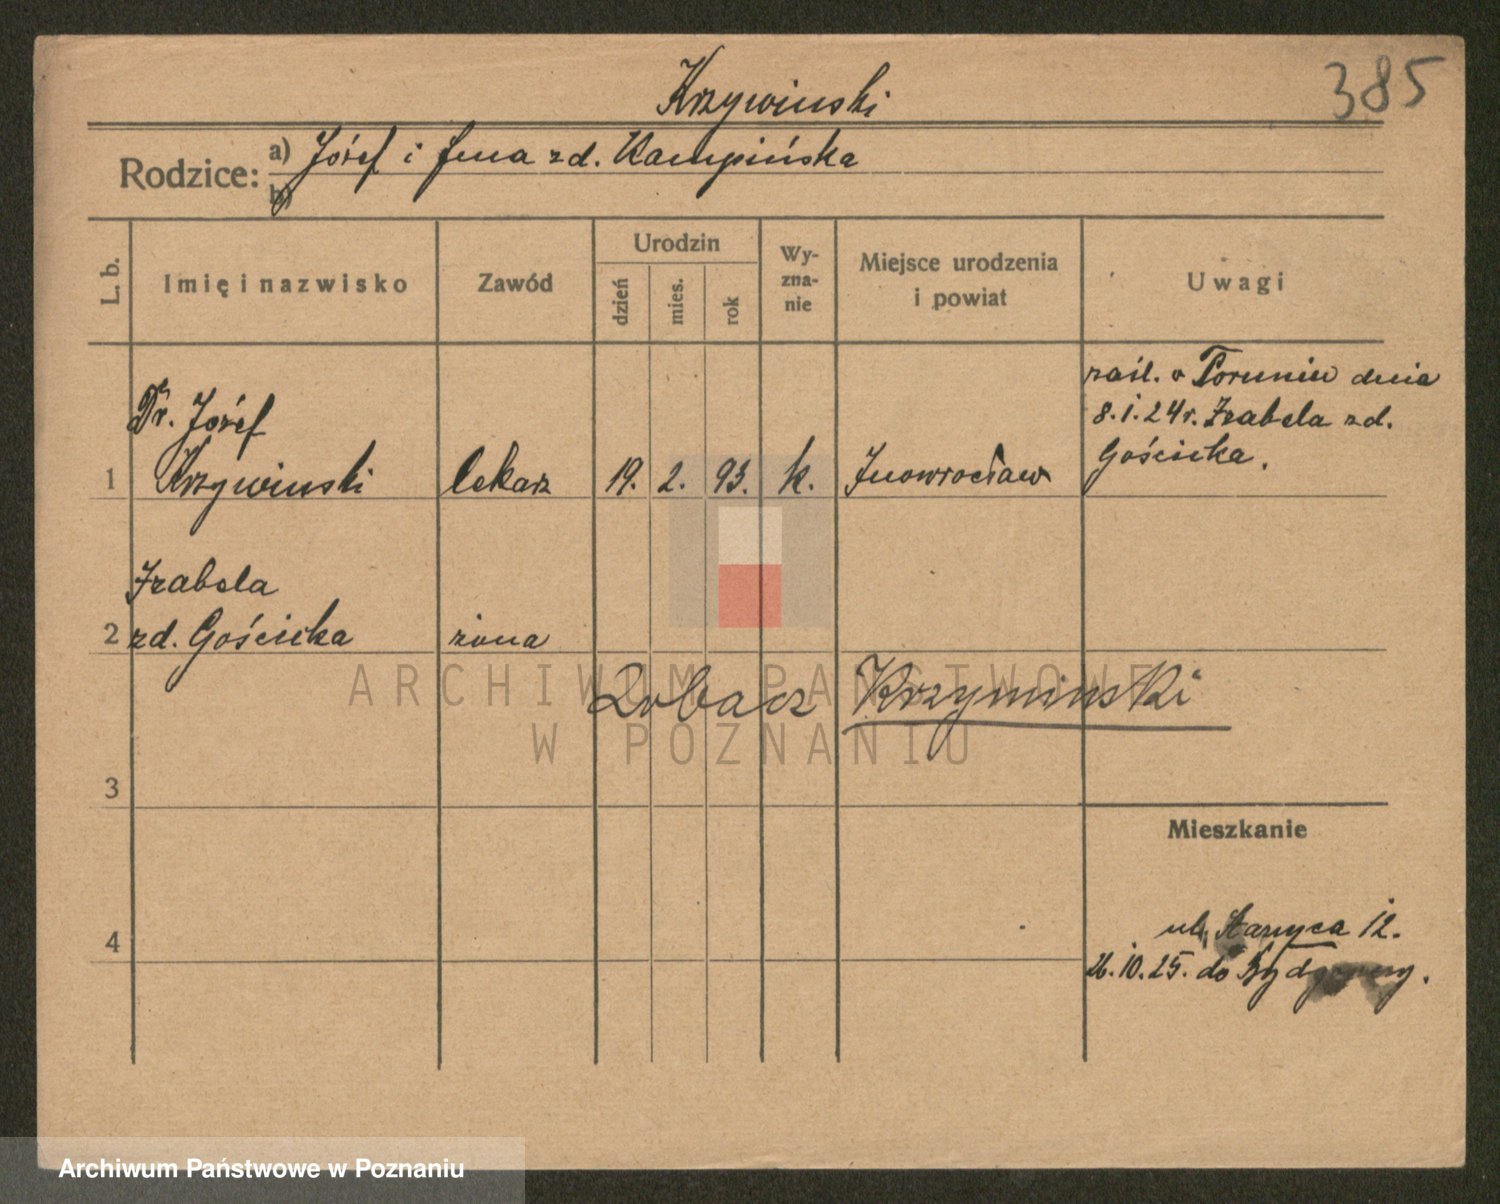 385
Krzywinski
Rodzice: a) Józef i Jrena zd. Kampińska
b)
L. b.
Imię i nazwisko
Zawód
Urodzin
dzień
mies.
rok
Wy-
zna-
nie
Miejsce urodzenia
i powiat
Uwagi
zaśl. w Toruniu dnia
8.1.24r. Izabela zd.
Gościcka.
Dr. Józef
1 Krzywinski lekarz 19. 2. 93. k. Inowrocław
Izabela
2 zd. Gościcka żona
Zobacz Krzymiński
3
Mieszkanie
4
ul. 12.
26.10.25. do Bydgoszczy.
ARCHIWUM PAŃSTWOWE
W POZNANIU
Archiwum Państwowe w Poznaniu